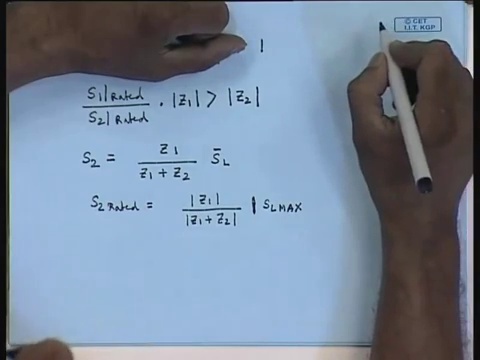 © CET
I.I.T. KGP
S₁|Rated / S₂|Rated · |Z₁| > |Z₂|
S₂ = Z₁ / Z₁ + Z₂ S̄L
S₂ Rated = |Z₁| / |Z₁ + Z₂| | SL MAX